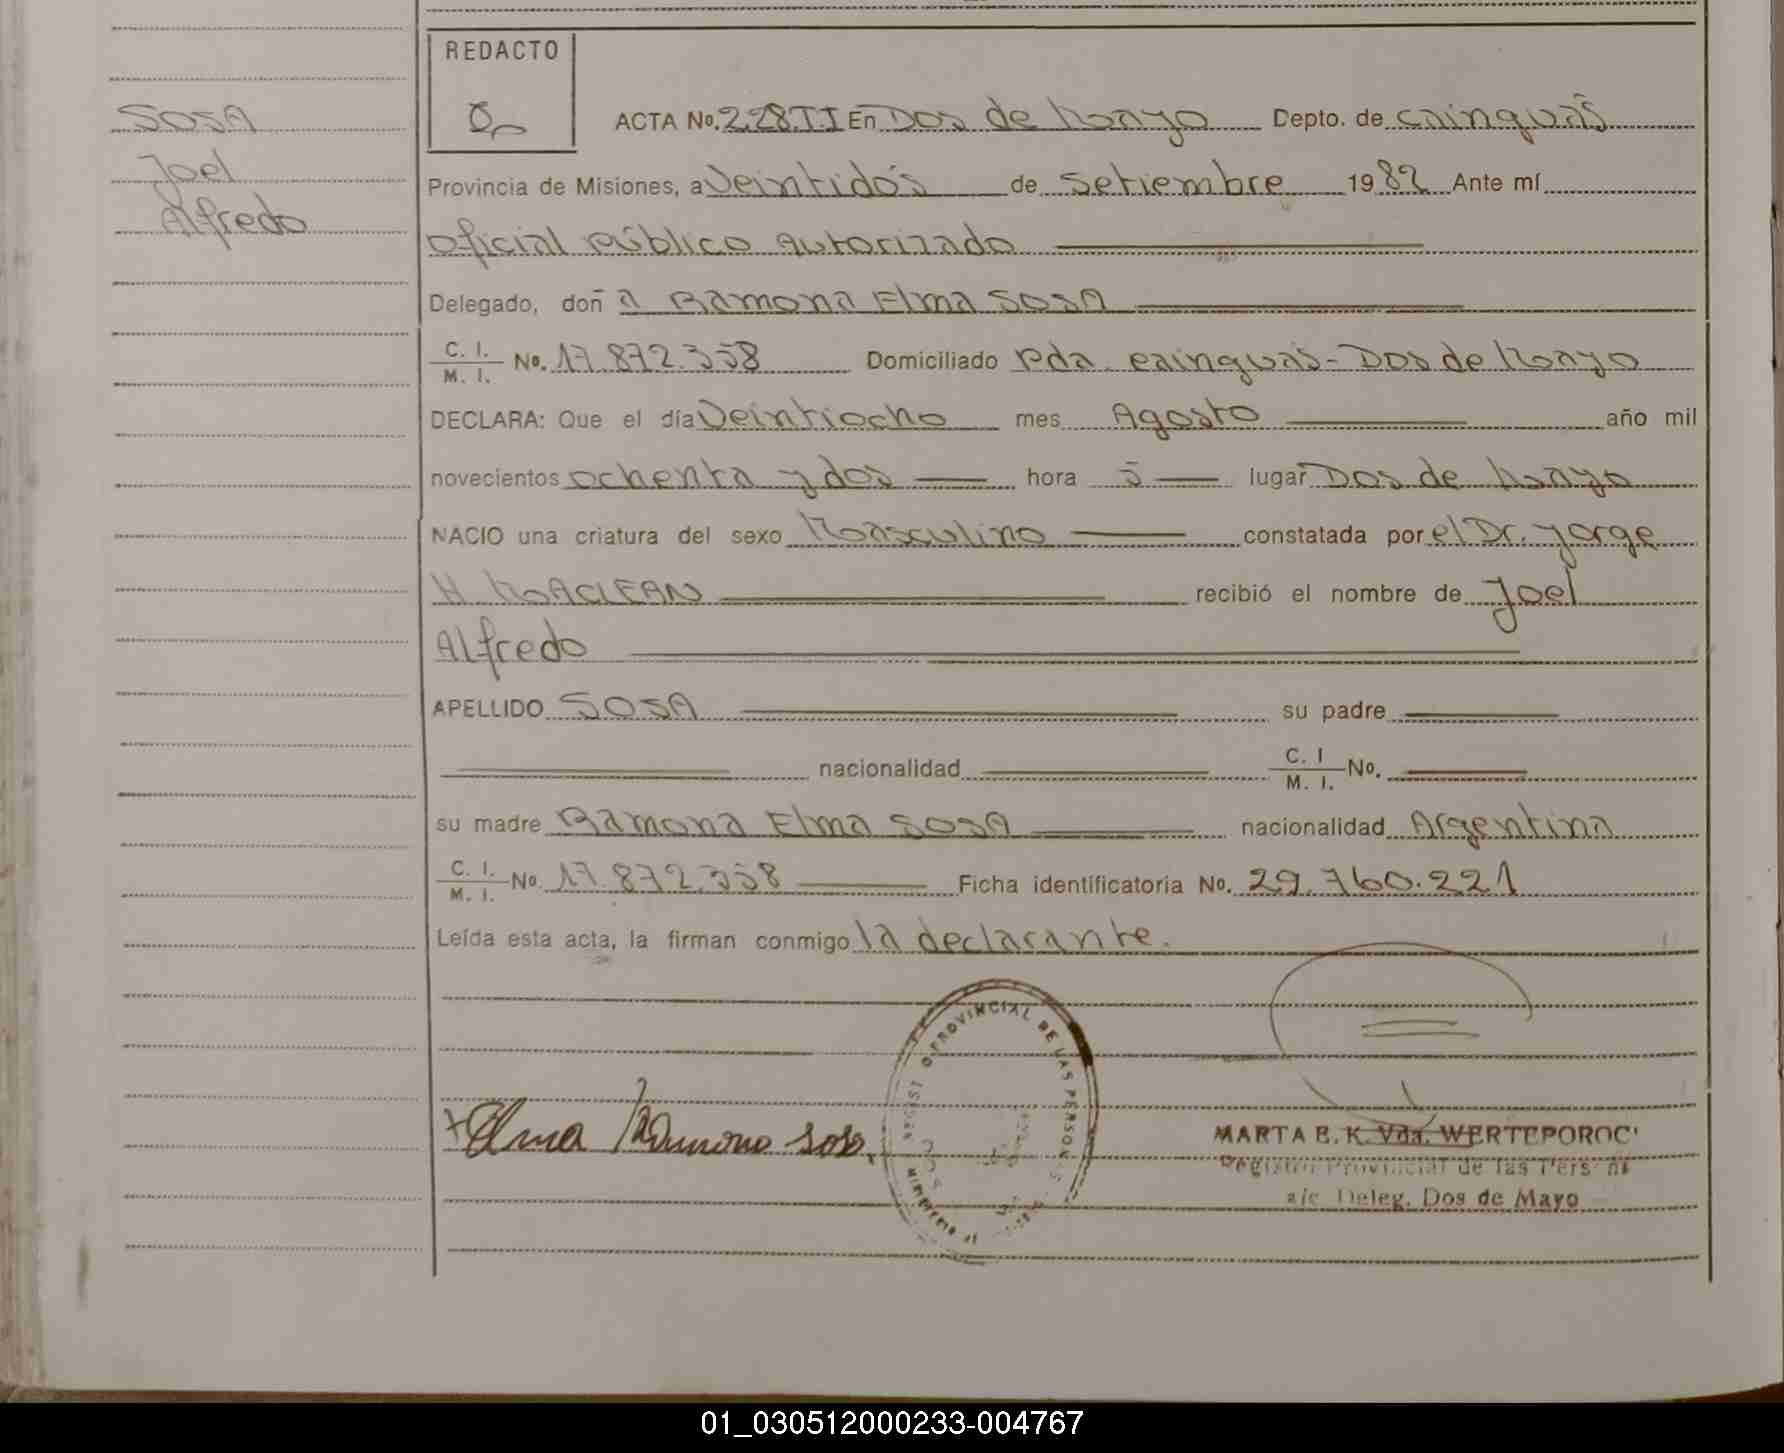 REDACTO
SOSA
Joel
Alfredo
ACTA No. 228.TI En Dos de Mayo Depto. de Cainguás
Provincia de Misiones, a Veintidós de Setiembre 1982 Ante mí
Oficial público Autorizado
Delegado, doña Ramona Elma SOSA
C. I. / M. I. No. 17.872.358 Domiciliado Pda. Cainguás - Dos de Mayo
DECLARA: Que el día Veintiocho mes Agosto año mil
novecientos ochenta y dos hora 5 lugar Dos de Mayo
NACIO una criatura del sexo Masculino constatada por el Dr. Jorge
H MACLEAN recibió el nombre de Joel
Alfredo
APELLIDO SOSA su padre
nacionalidad C. I / M. I. No.
su madre Ramona Elma SOSA nacionalidad Argentina
C. I. / M. I. No. 17.872.358 Ficha identificatoria No. 29.760.221
Leída esta acta, la firman conmigo la declarante.
PROVINCIAL DE LAS PERSON S
Elma Ramona Sosa.
MARTA E. K. Vda. WERTEPOROC
Registro Provincial de las Pers
a/c Deleg. Dos de Mayo
01_030512000233-004767